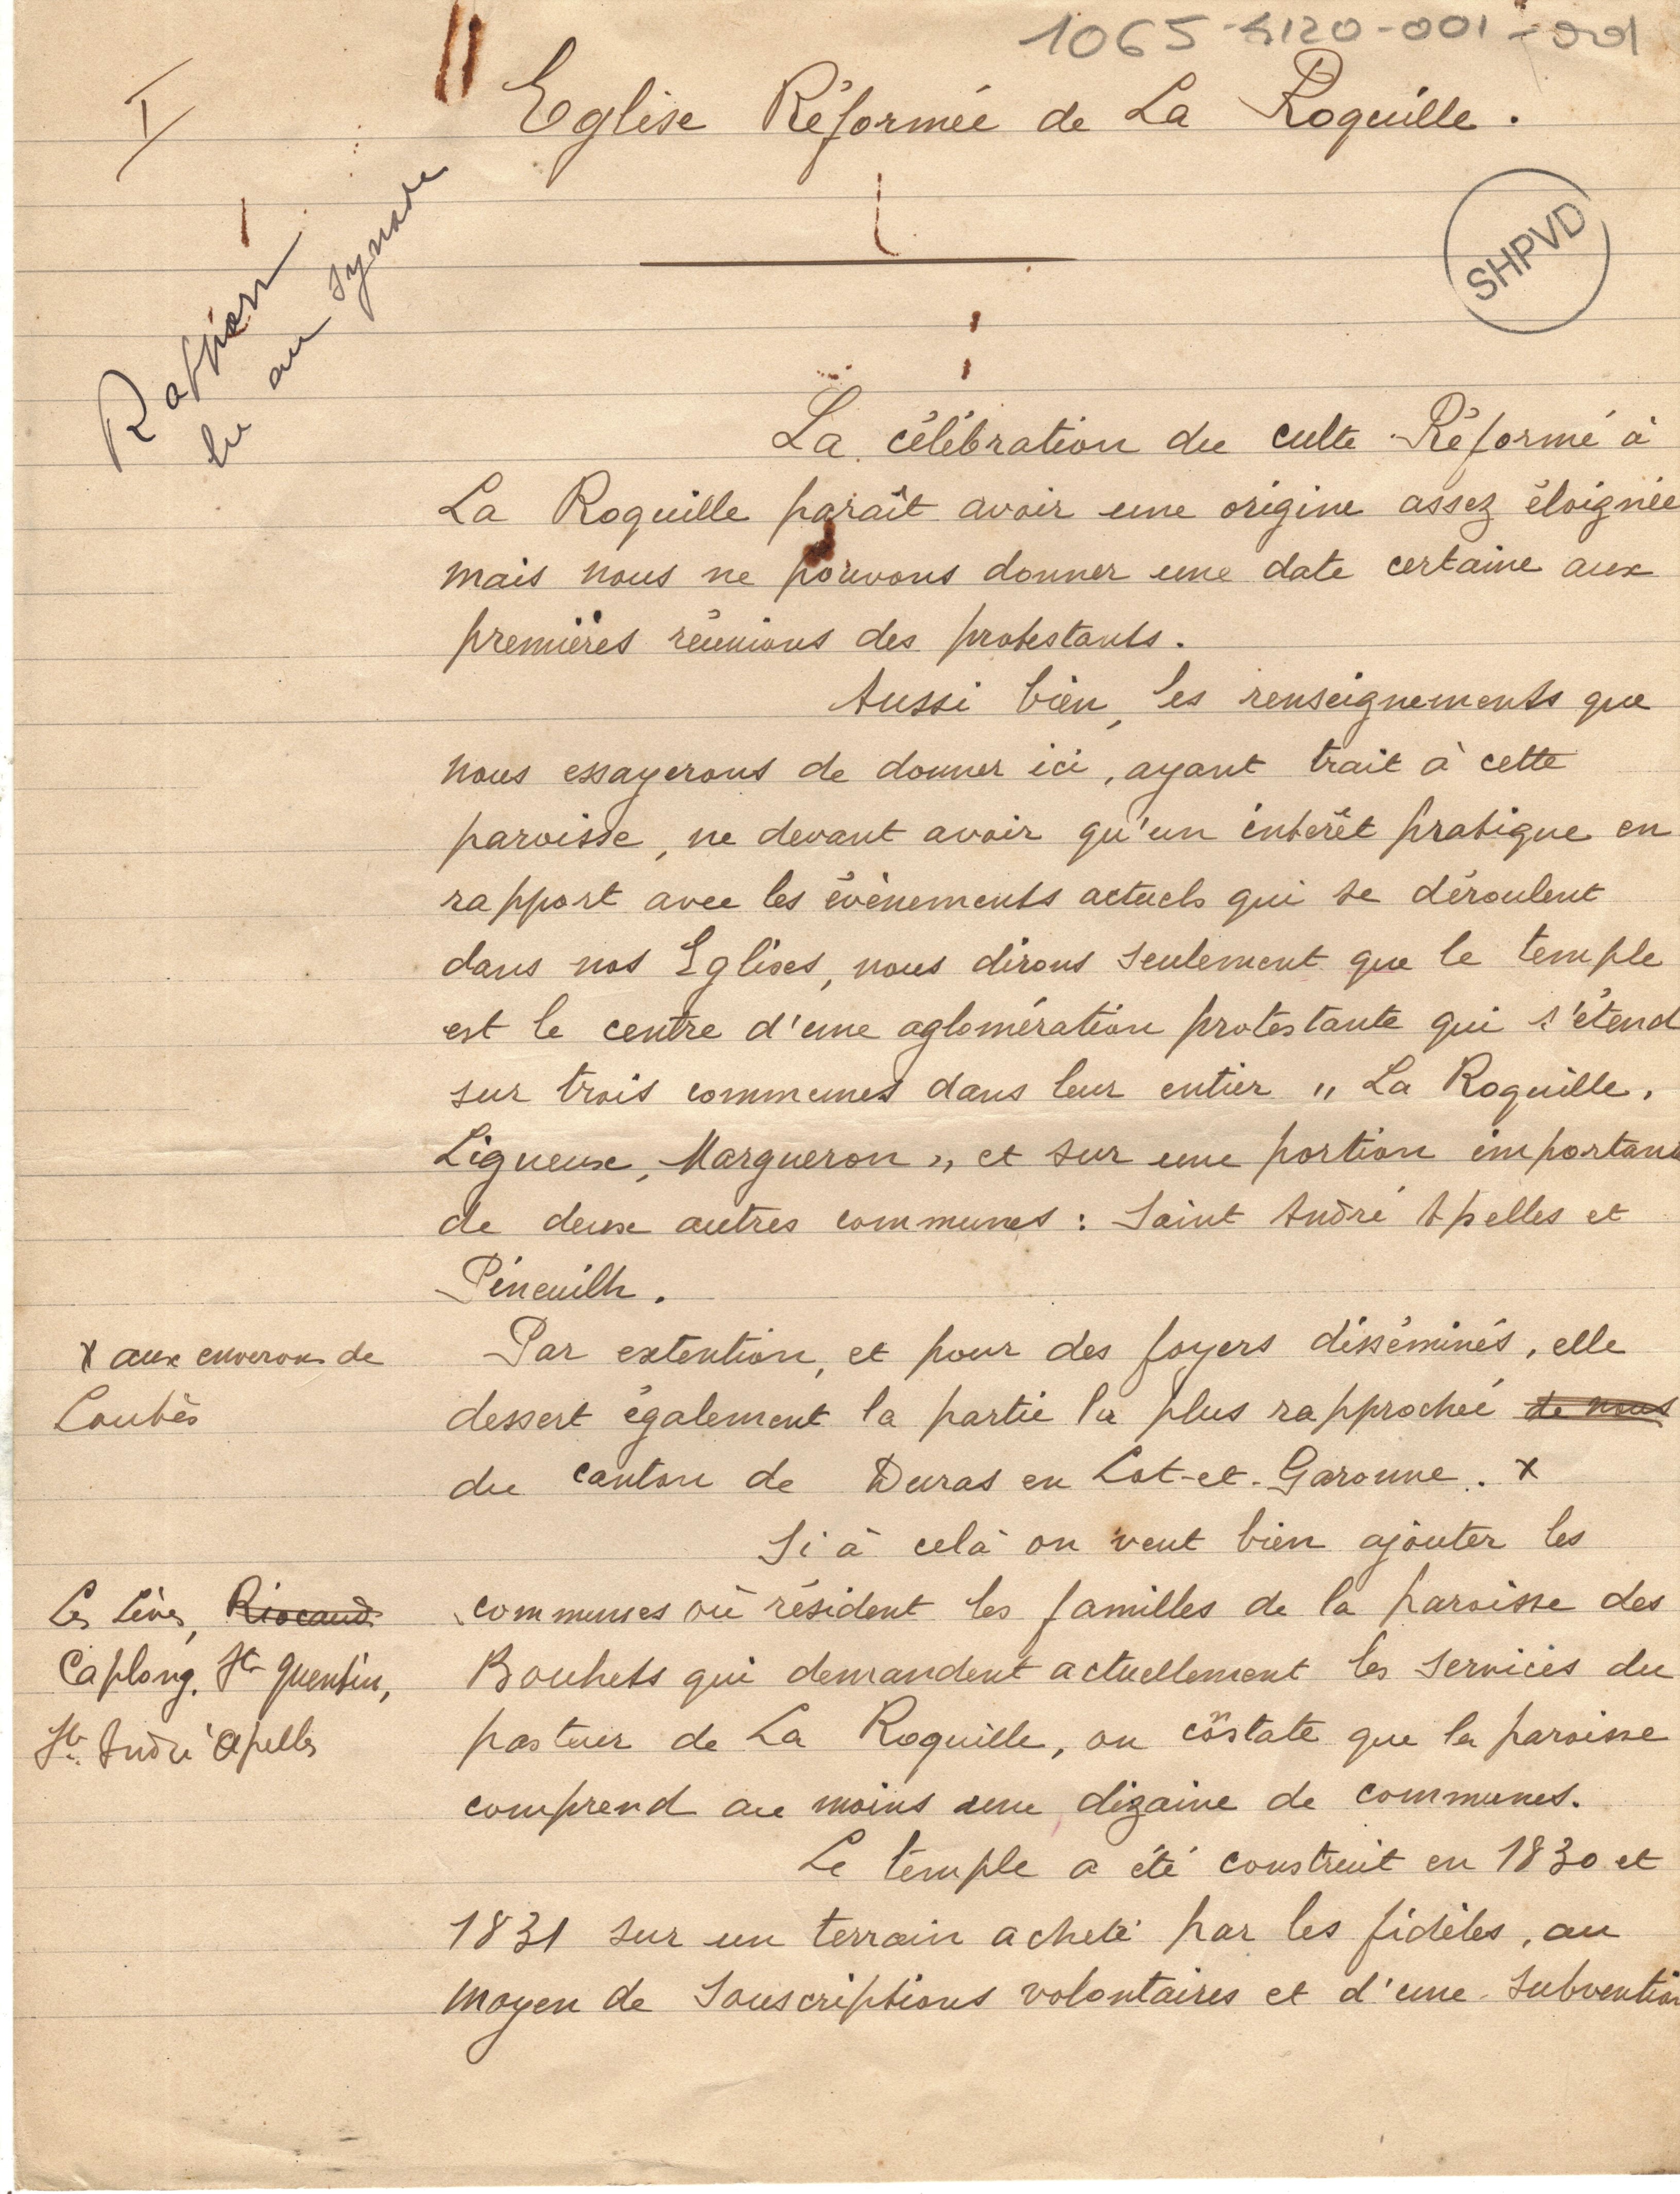 1065-4120-001-001
I
Eglise Réformée de La Roquille.
SHPVD
Rapport
lu au synode
La célébration du culte Réformé à
La Roquille paraît avoir une origine assez éloignée
mais nous ne pouvons donner une date certaine aux
premières réunions des protestants.
Aussi bien, les renseignements que
nous essayerons de donner ici, ayant trait à cette
paroisse, ne devant avoir qu'un intérêt pratique en
rapport avec les évènements actuels qui se déroulent
dans nos Eglises, nous dirons seulement que le temple
est le centre d'une aglomération protestante qui s'étend
sur trois communes dans leur entier " La Roquille,
Ligueux, Margueron ", et sur une portion importan
de deux autres communes : Saint André Apelles et
Pineuilh.
Par extention, et pour des foyers disséminés, elle
dessert également la partie la plus rapprochée de nous
du canton de Duras en Lot-et-Garonne. x
x aux environs de
Loubès
Si à celà on veut bien ajouter les
communes où résident les familles de la paroisse des
Bouhets qui demandent actuellement les services du
pasteur de La Roquille, on constate que la paroisse
comprend au moins une dizaine de communes.
Les Lèves, Riocaud
Caplong, St Quentin,
St. André Apelles
Le temple a été construit en 1830 et
1831 sur un terrain acheté par les fidèles, au
moyen de souscriptions volontaires et d'une subvention